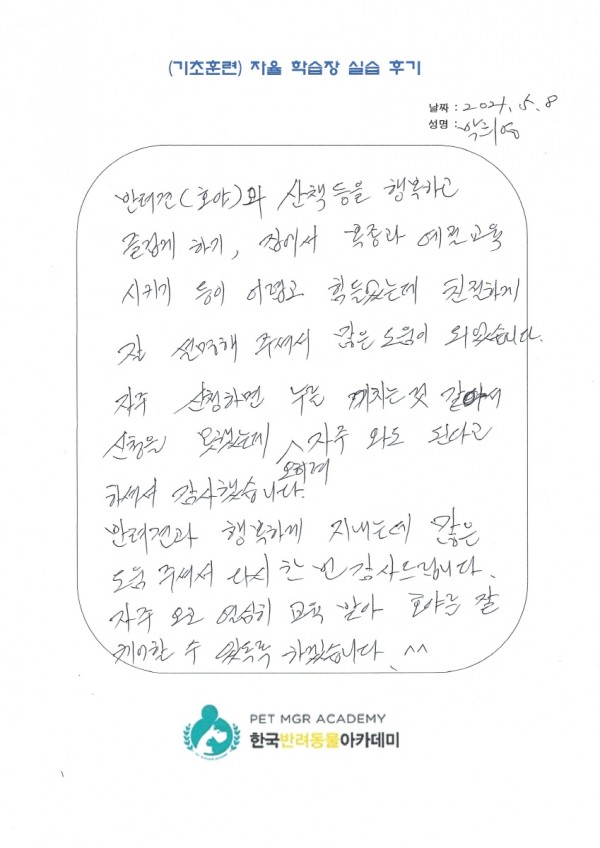 (기초훈련) 자율 학습장 실습 후기
날짜 : 2021. 5. 8
성명 :
반려견(호야)와 산책 등을 행복하고
즐겁게 하기, 집에서 복종과 예절교육
시키기 등이 어렵고 힘들었는데 친절하게
잘 설명해 주셔서 많은 도움이 되었습니다.
자주 신청하면 누를 끼치는것 같아서
신청을 못했는데 오히려 자주 와도 된다고
하셔서 감사했습니다.
반려견과 행복하게 지내는데 많은
도움 주셔서 다시 한 번 감사드립니다.
자주 오고 열심히 교육 받아 호야를 잘
케어할 수 있도록 하겠습니다. ^^
PET MGR ACADEMY
한국반려동물아카데미